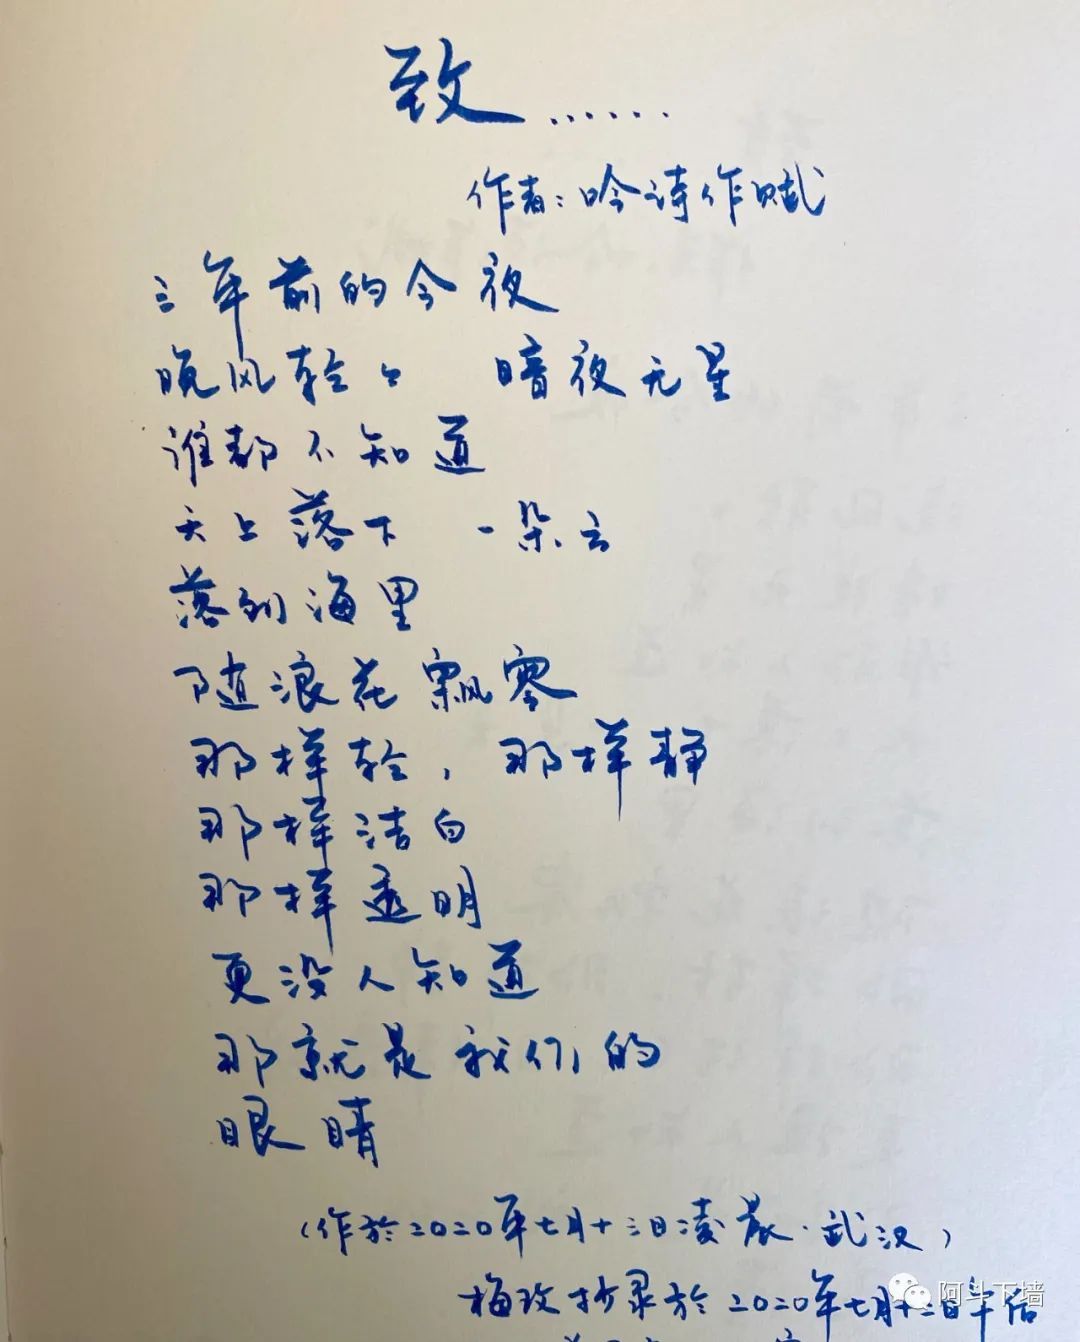 致……
作者:吟诗作赋
三年前的今夜
晚风轻轻 暗夜无星
谁都不知道
天上落下 一朵云
落到海里
随浪花飘零
那样轻,那样静
那样洁白
那样透明
更没人知道
那就是我们的
眼睛
(作於2020年七月十三日凌晨·武汉)
梅玫抄录於2020年七月十三日午后
阿斗下墙